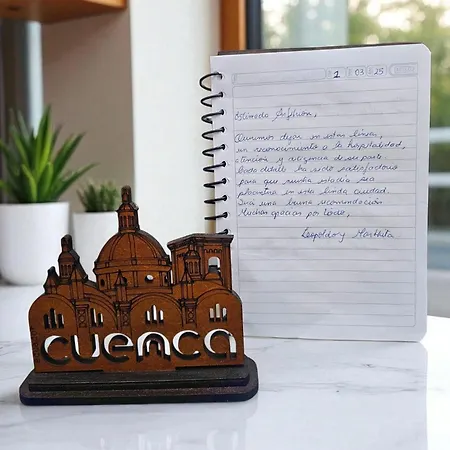 1 03 25
Estimado
Queremos dejar en estas líneas,
un reconocimiento a la hospitalidad,
atención y diligencia de su parte
todo ha sido satisfactorio
para que nuestra estadía sea
placentera en esta linda ciudad.
una buena recomendación
Muchas gracias por todo,
Leopoldo y Marthita
cuenca